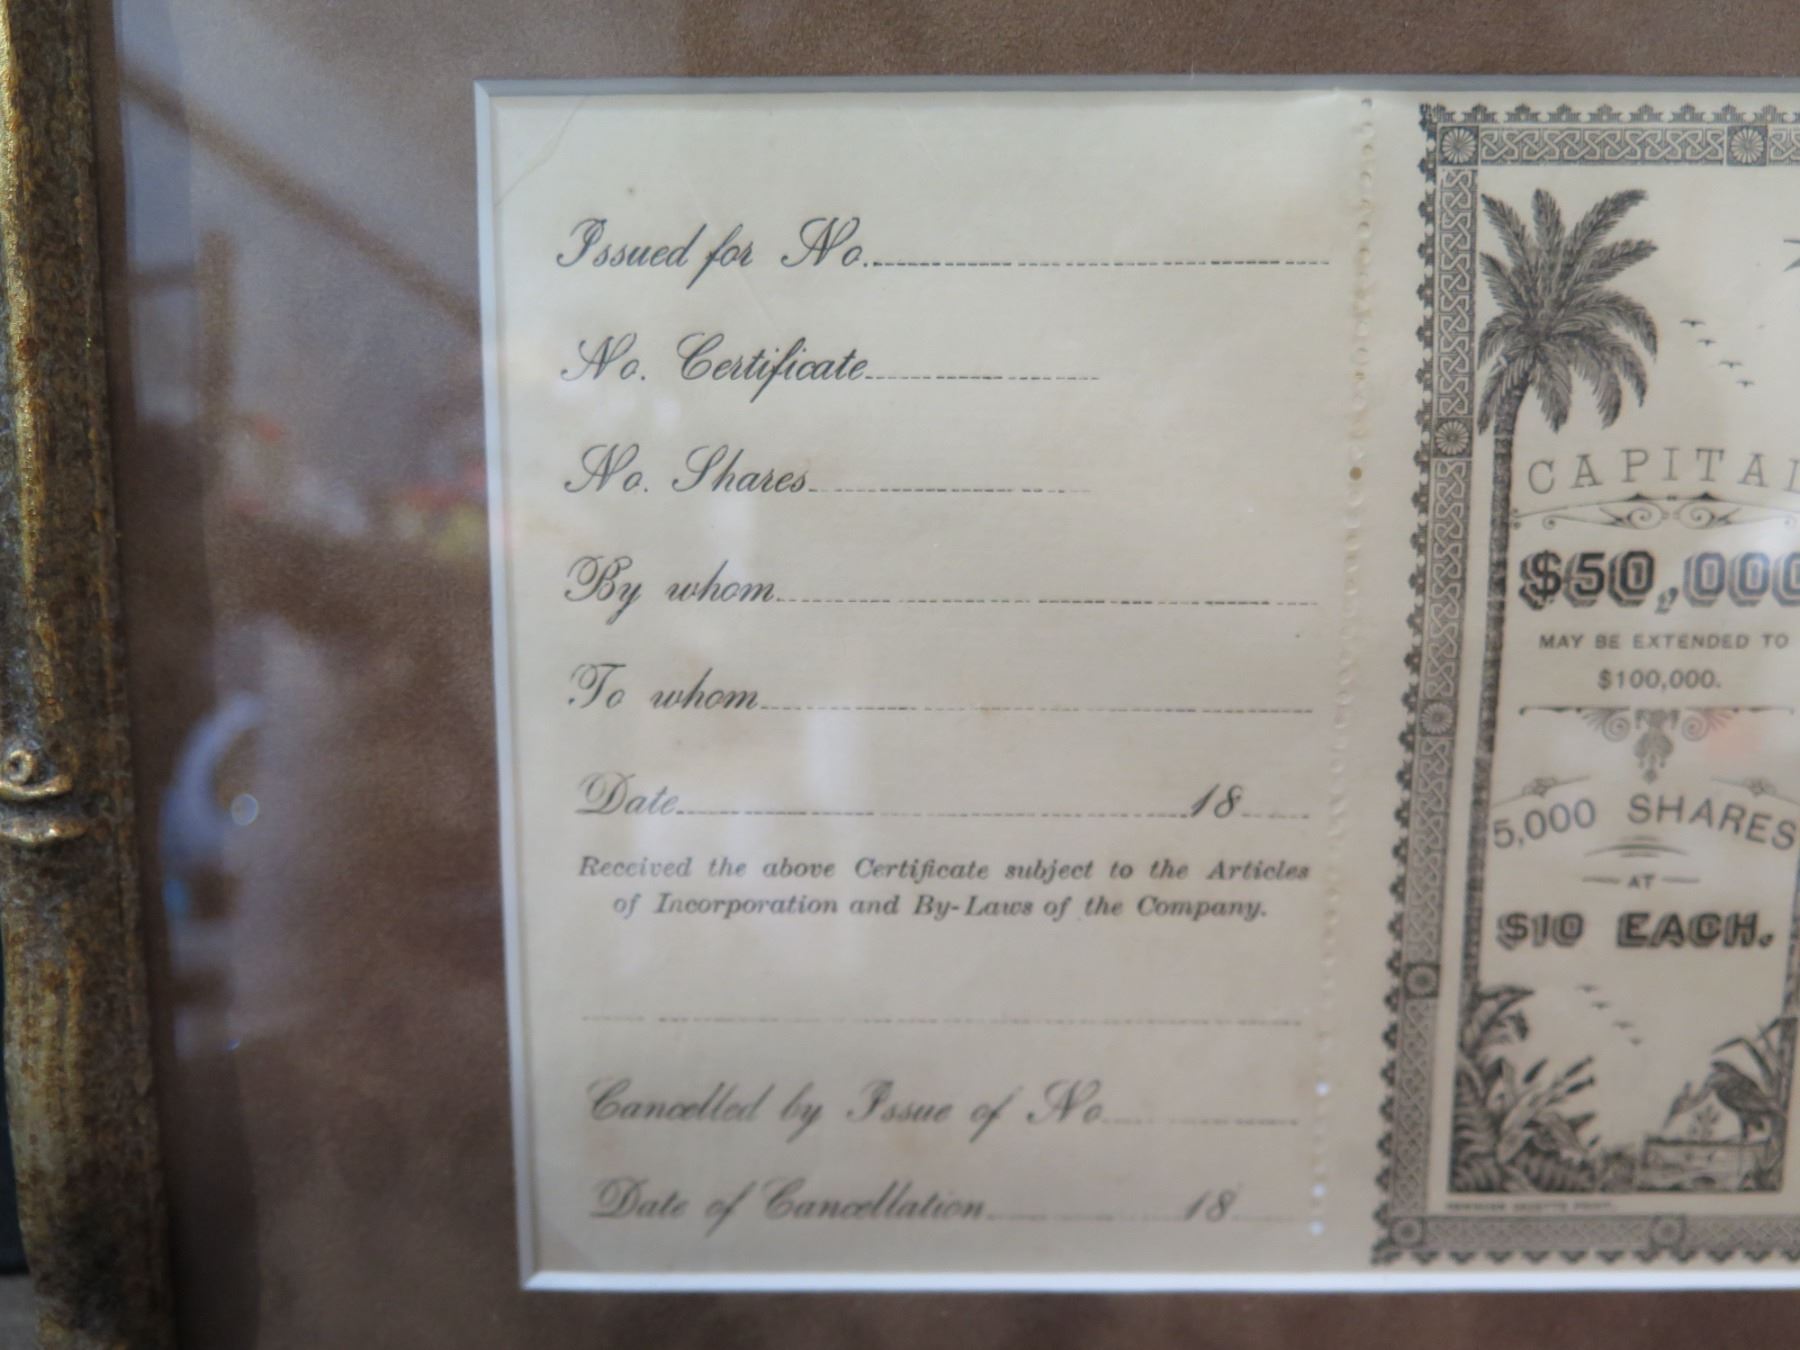 Issued for No.
No. Certificate
No. Shares
By whom
To whom
Date 18
Received the above Certificate subject to the Articles
of Incorporation and By-Laws of the Company.
Cancelled by Issue of No.
Date of Cancellation 18
CAPITAL
$50,000
MAY BE EXTENDED TO
$100,000.
5,000 SHARES
AT
$10 EACH.